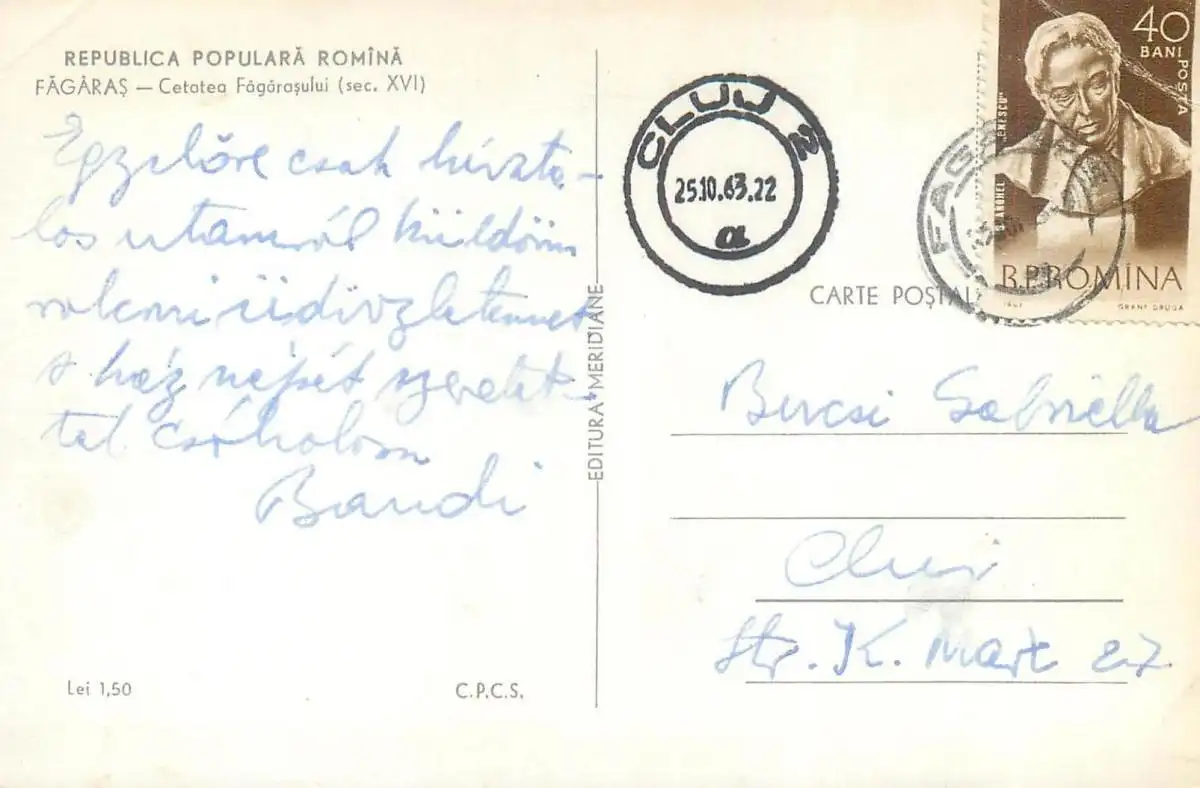 REPUBLICA POPULARĂ ROMÎNĂ
FĂGĂRAŞ — Cetatea Făgăraşului (sec. XVI)
Egzelőre csak hivata-
los utamról küldöm
üdvözletemet
s ház népét szeretet-
tel csókolom
Bandi
Lei 1,50
C.P.C.S.
EDITURA MERIDIANE
CLUJ 2
25.10.63.22
α
40
BANI
POSTA
R.P.ROMÎNA
CARTE POŞTAL
Bucsi Gabriella
Cluj
Str. K. Marx 27